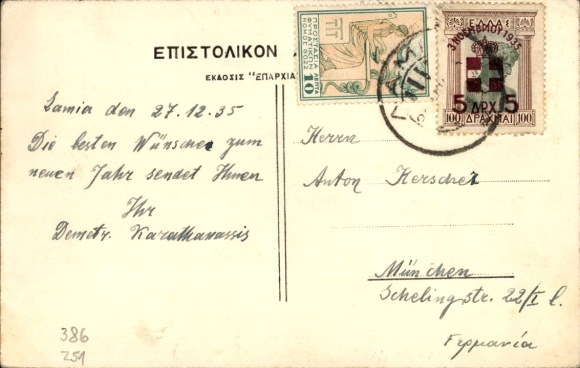 ΕΠΙΣΤΟΛΙΚΟΝ
ΕΚΔΟΣΙΣ "ΕΠΑΡΧΙΑ
ΠΡΟΣΤΑΣΙΑ
ΦΥΜΑΤΙΚΩΝ
ΛΕΠΤΑ
10
ΕΛΛΑΣ
3 ΝΟΕΜΒΡΙΟΥ 1935
5 ΔΡΧ 5
100 ΔΡΑΧΜΑΙ 100
Lamia den 27.12.35
Die besten Wünsche zum
neuen Jahr sendet Ihnen
Ihr
Demetr. Karathanassis
Herrn
Anton Herscher
München
Schelingstr. 22/I l.
Γερμανία
386
251